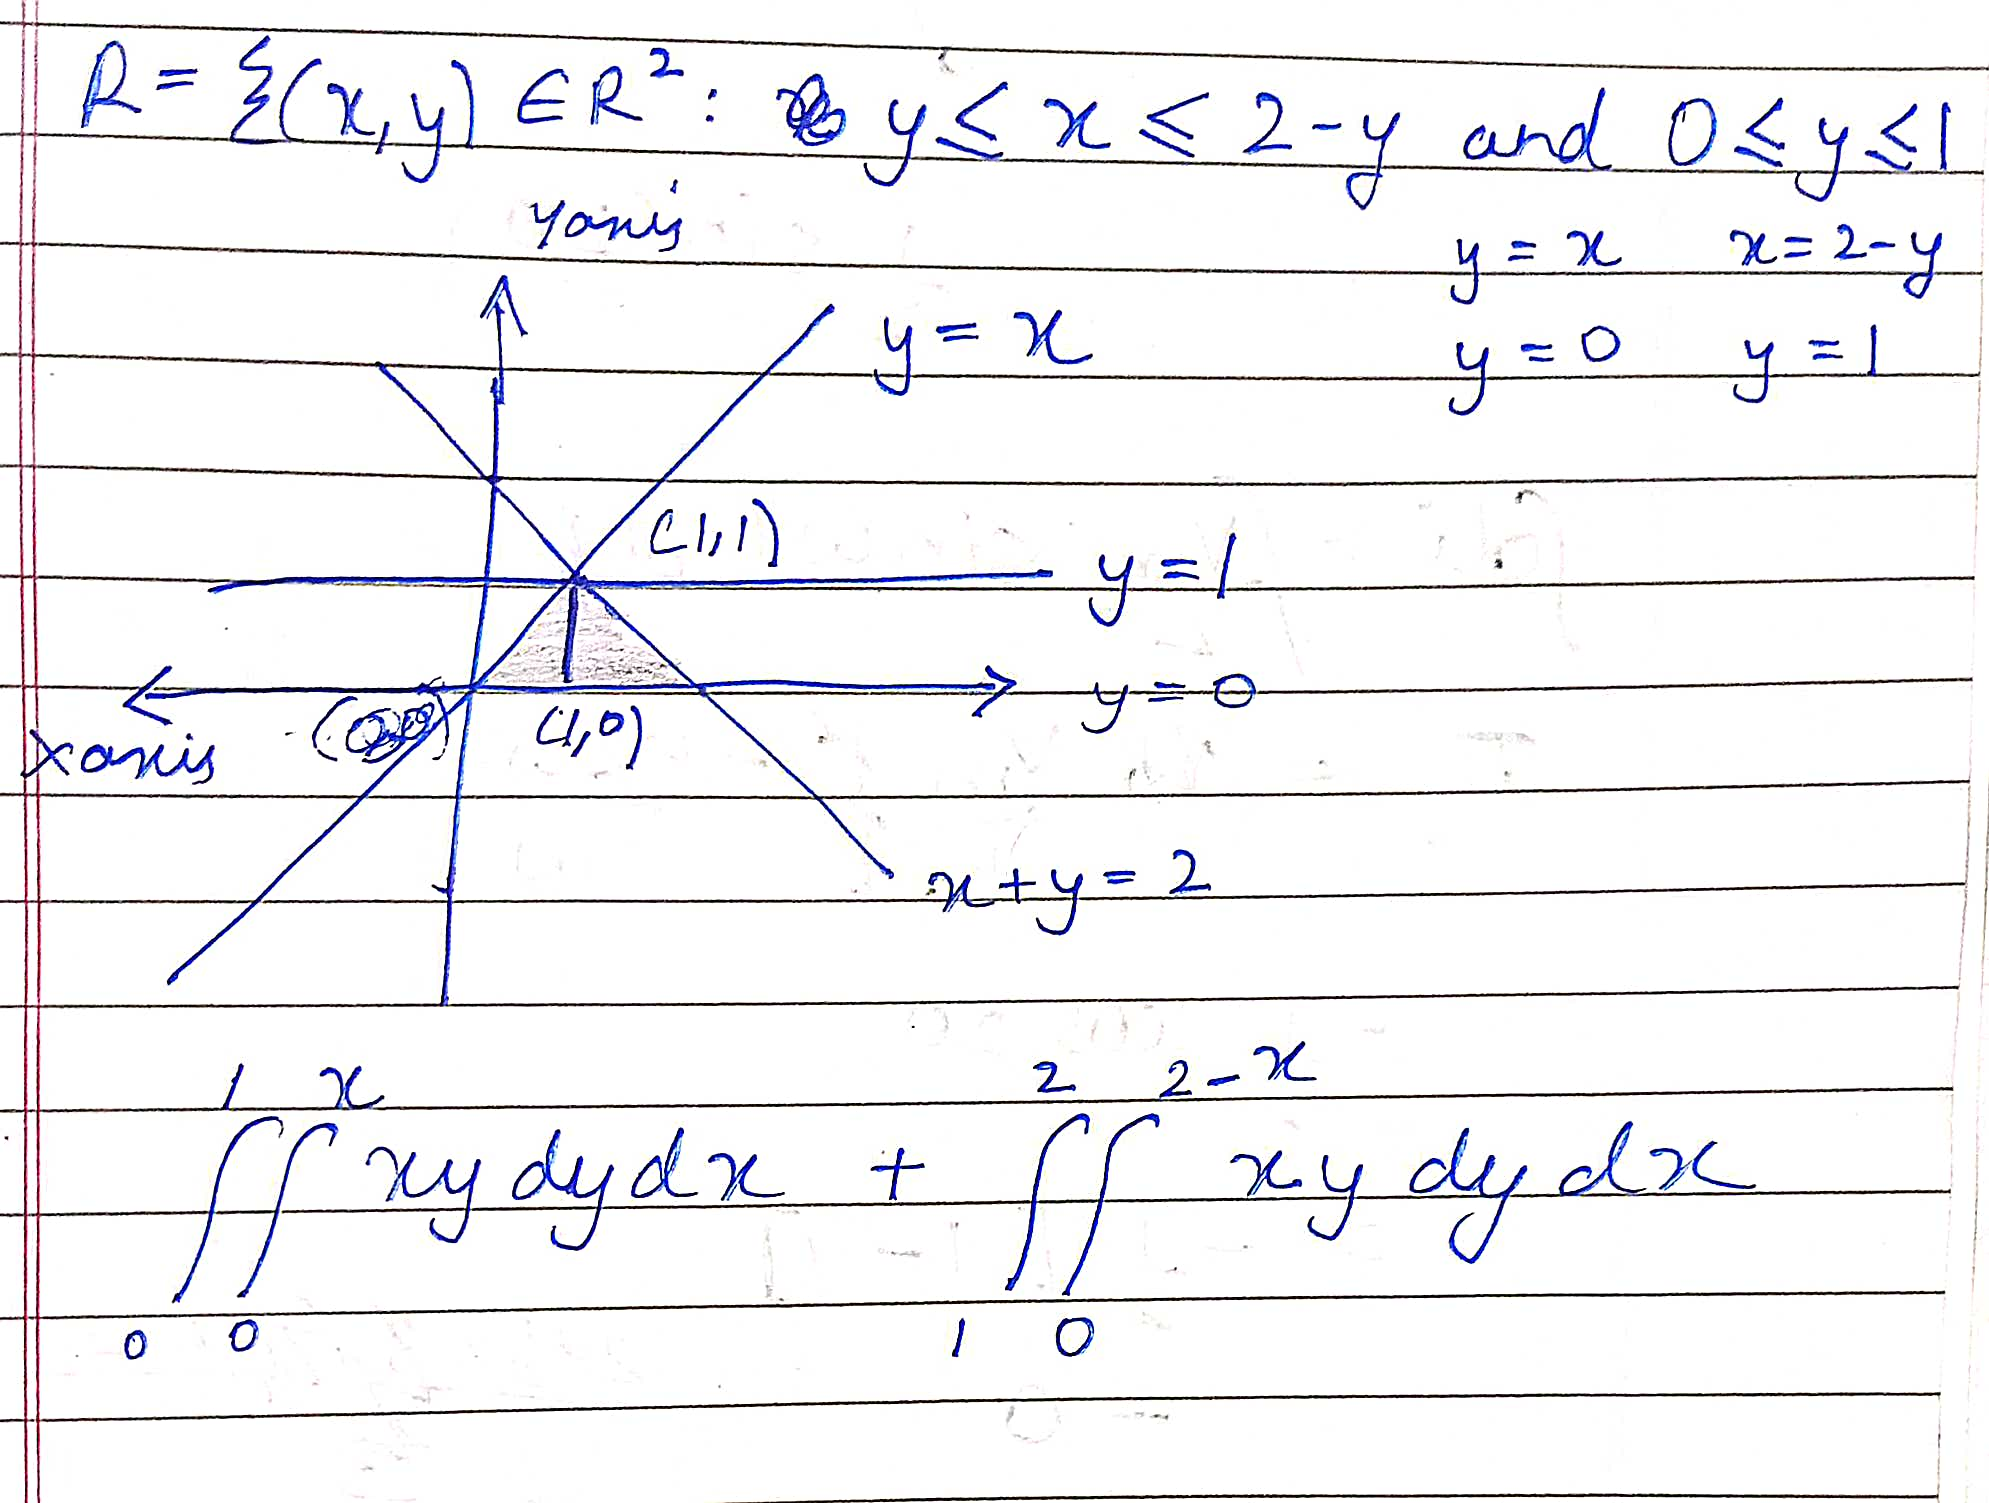 R = {(x,y) ∈ R² : y ≤ x ≤ 2-y and 0 ≤ y ≤ 1
y axis
y = x x = 2-y
y = 0 y = 1
y = x
(1,1)
y = 1
y = 0
x axis (0,0) (1,0)
x + y = 2
∫₀¹ ∫₀ˣ xy dy dx + ∫₁² ∫₀²⁻ˣ xy dy dx